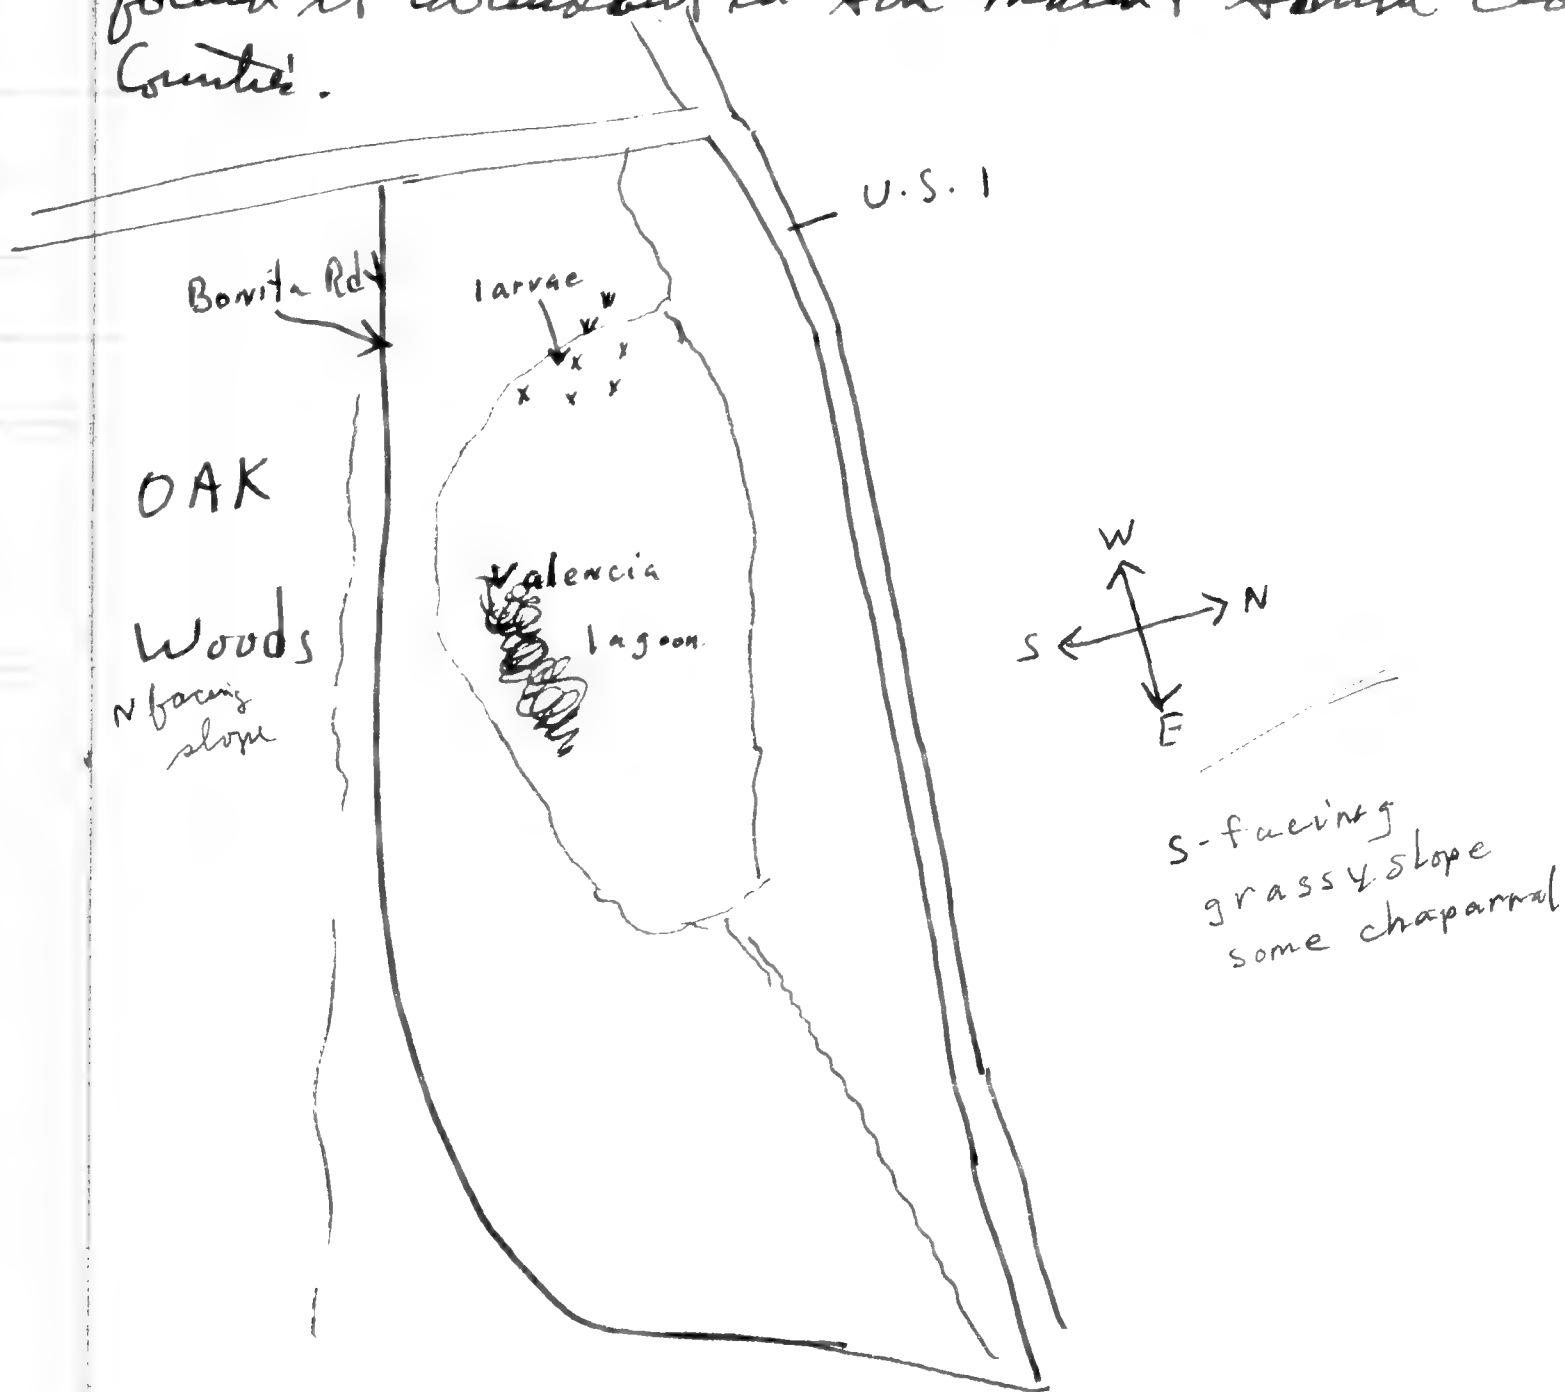 Counties.
U.S. 1
Bonita Rd
larvae
OAK
Woods
N facing
slope
Valencia
lagoon
W
N
S
E
S-facing
grassy slope
some chaparral